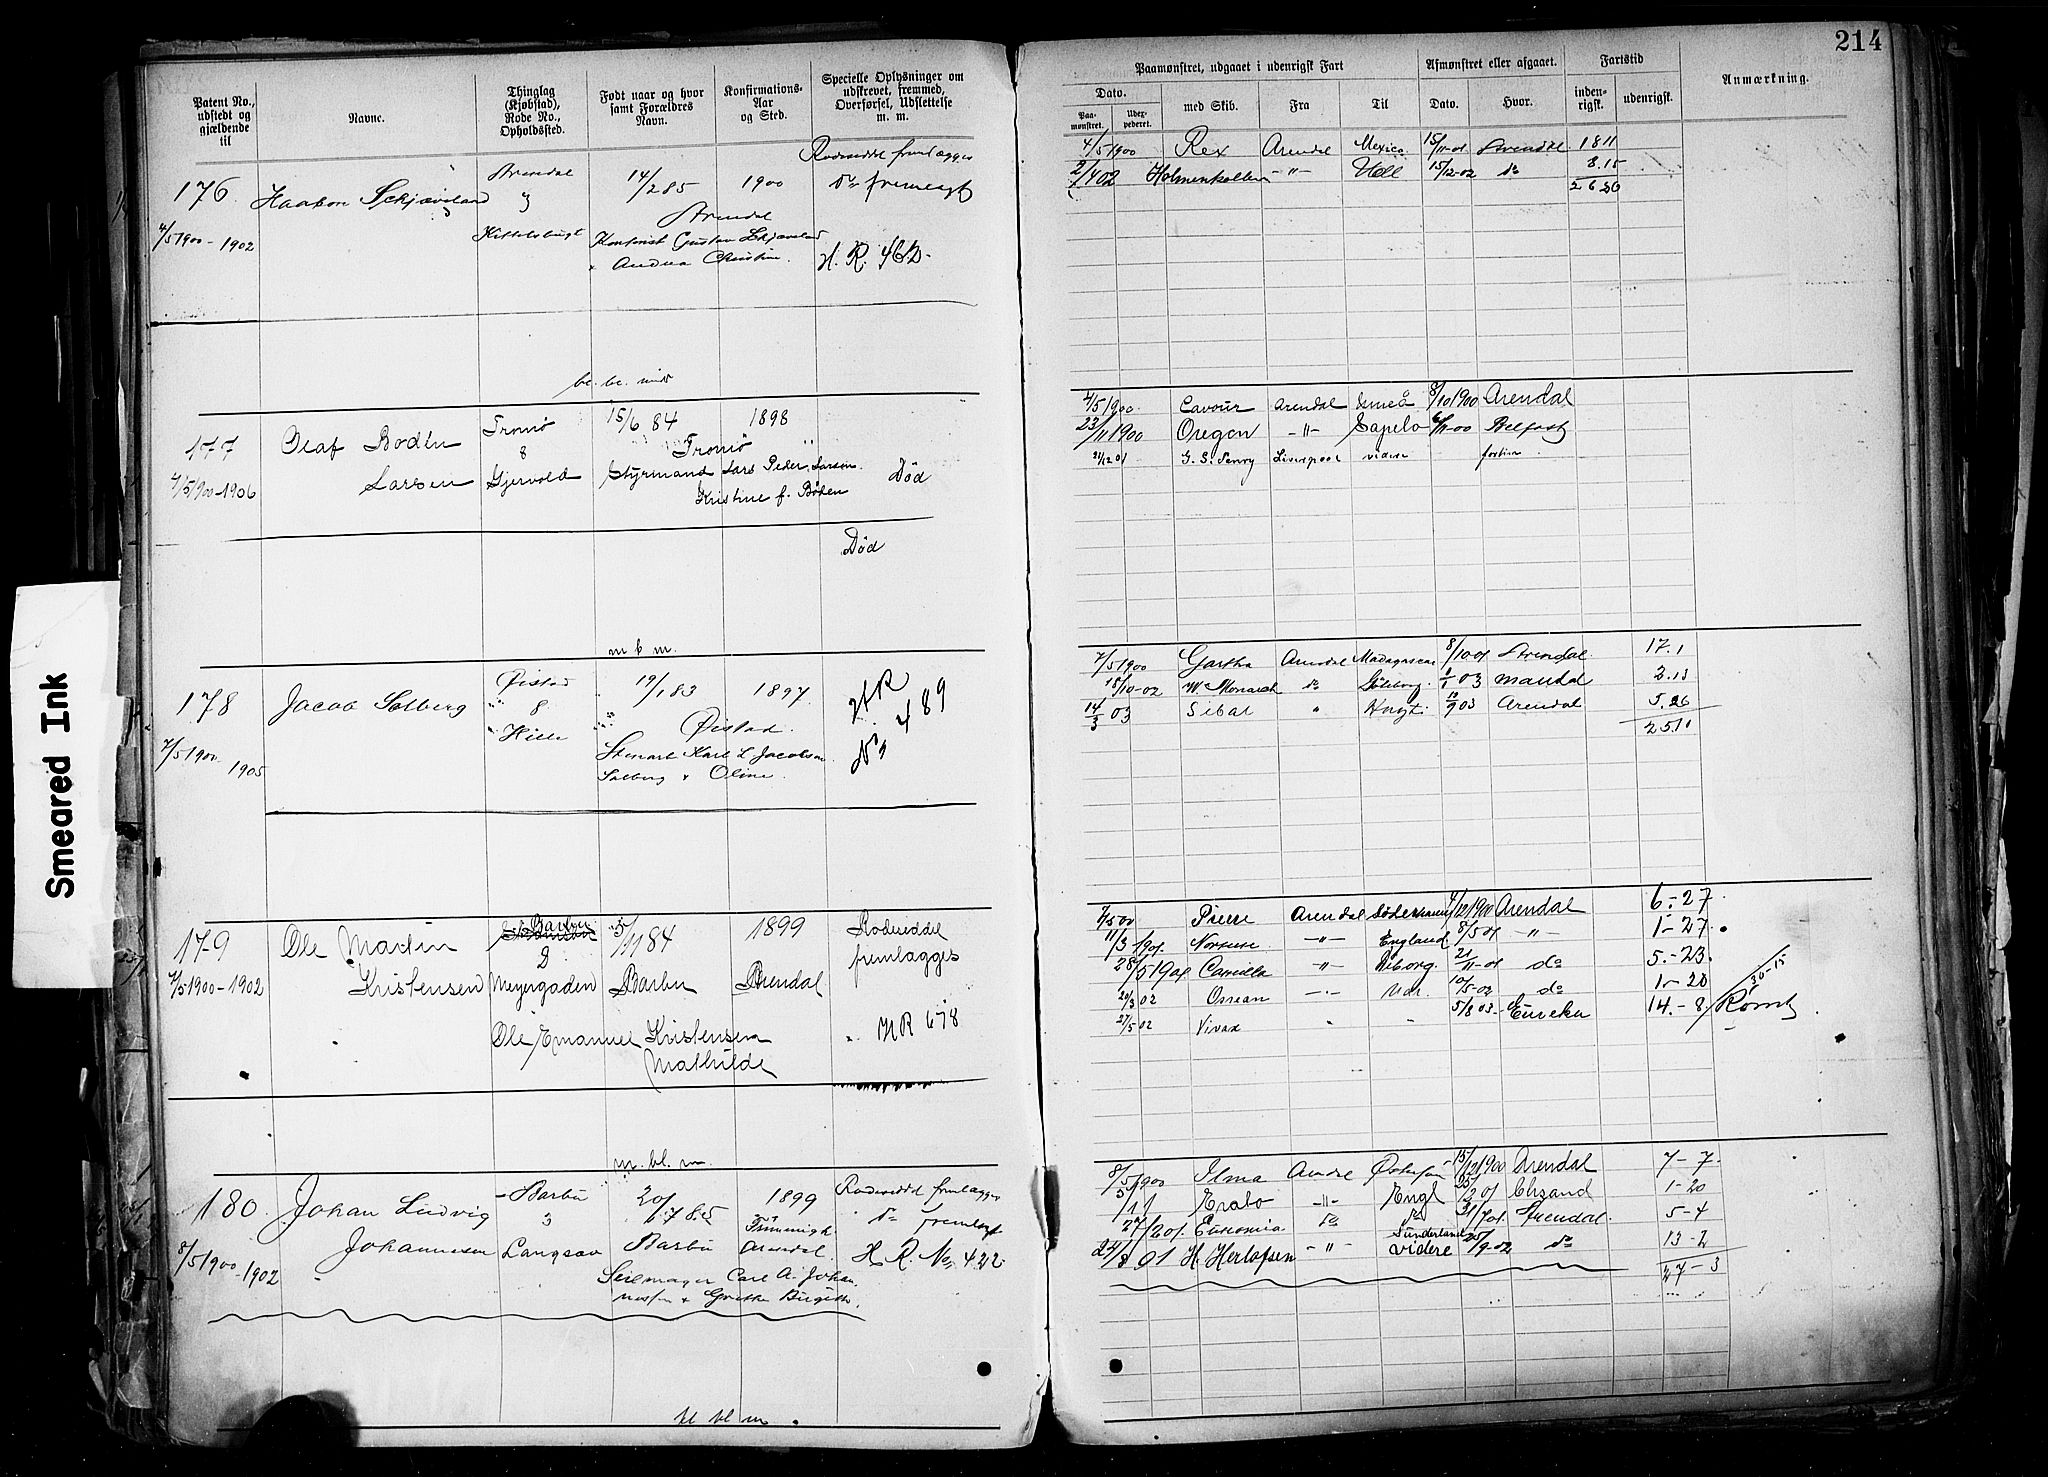 214
Patent No., udstedt og gjældende til
Navne.
Thinglag (Kjøbstad), Rode No., Opholdssted.
Født naar og hvor samt Forældres Navn.
Konfirmations-Aar og Sted.
Specielle Oplysninger om udskrevet, fremmed, Overførsel, Udslettelse m. m.
Paamønstret, udgaaet i udenrigsk Fart
Afmønstret eller afgaaet.
Fartstid
Anmærkning.
Dato.
Paa-mønstret.
Udex-pederet.
med Skib.
Fra
Til
Dato.
Hvor.
inden-rigsk.
udenrigsk.
Rodeseddel fremlægges
176
Haakon Schjæveland
Arendal
3
Kittelsbugt
14/2 85
1900
do fremlagt
4/5 1900 - 1902
Arendal
Kontorist Gustav Skjæveland
Andrea Christine.
H. R. 462.
4/5 1900 Rex Arendal Mexico 15/11-01 Arendal 1811
2/4 02 Holmenkollen -"- 15/12-02 do 8.15
2626
177
Olaf Bodin
Larsen
Tromø
8
Gjervold
15/6 84
1898
Tromø
Styrmand Lars Peder Larsen
Kristine f. Bøhen
Død
4/5 1900-1906
Død
4/5 1900 Cavour Arendal Umeå 8/10 1900 Arendal
23/11 1900 Oregon -"- Sapelo 6/11-00 Belfast
21/12 01 G. S. Penry Liverpool videre
m b m.
178
Jacob Solberg
Øistad
8
Hille
19/1 83
1897
Øistad.
Stenarb Karl L Jacobsen
Solberg & Oline.
HR
No 489
7/5 1900 1905
7/5 1900 Gartha Arendal Madagascar 8/10 01 Arendal 17.1
15/10-02 W. Monarch do Göteborg 03 Mandal 2.13
14/3 03 Sibal " 10/9 03 Arendal 5.26
25.10
179
Ole Martin
Kristensen
Barbu
2
Meyergaden
5/11 84
Barbu
1899
Arendal
Rodeseddel fremlægges
7/5 1900-1902
Ole Emanuel Kristensen
Mathilde
HR 678
7/5 00 Pierre Arendal Söderhamn 4/12 1900 Arendal 6-27
11/3 1901 Norsense -"- England 8/5 01 -"- 1-27
28/5 1901 Camilla -"- Viborg. 21/11-01 do 5-23.
20/3 02 Ossian -"- 10/5-02 do 1-20
27/5 02 Vivax " " 5/8 03 Eureka 14-8
30-15
m. bl. m.
180
Johan Ludvig
Johannesen
Barbu
3
Langsæv
20/7 85
Barbu
Seilmager Carl A. Johannessen & Grethe Birgitte.
1899
Arendal.
Rodeseddel fremlægges
do fremlagt
H. R. No 422.
8/5 1900 - 1902
8/5 1900 Ilma Arendal 15/12 1900 Arendal 7-7.
Erato -"- Engl 01 Chsand 1-20
27/6 01. Eunomia do do 31/7 01. Arendal. 5-4
24/8 01 H. Herlofsen -"- Sunderland videre 25/9-02 do 13-2
27-3
bl bl m
Smeared Ink